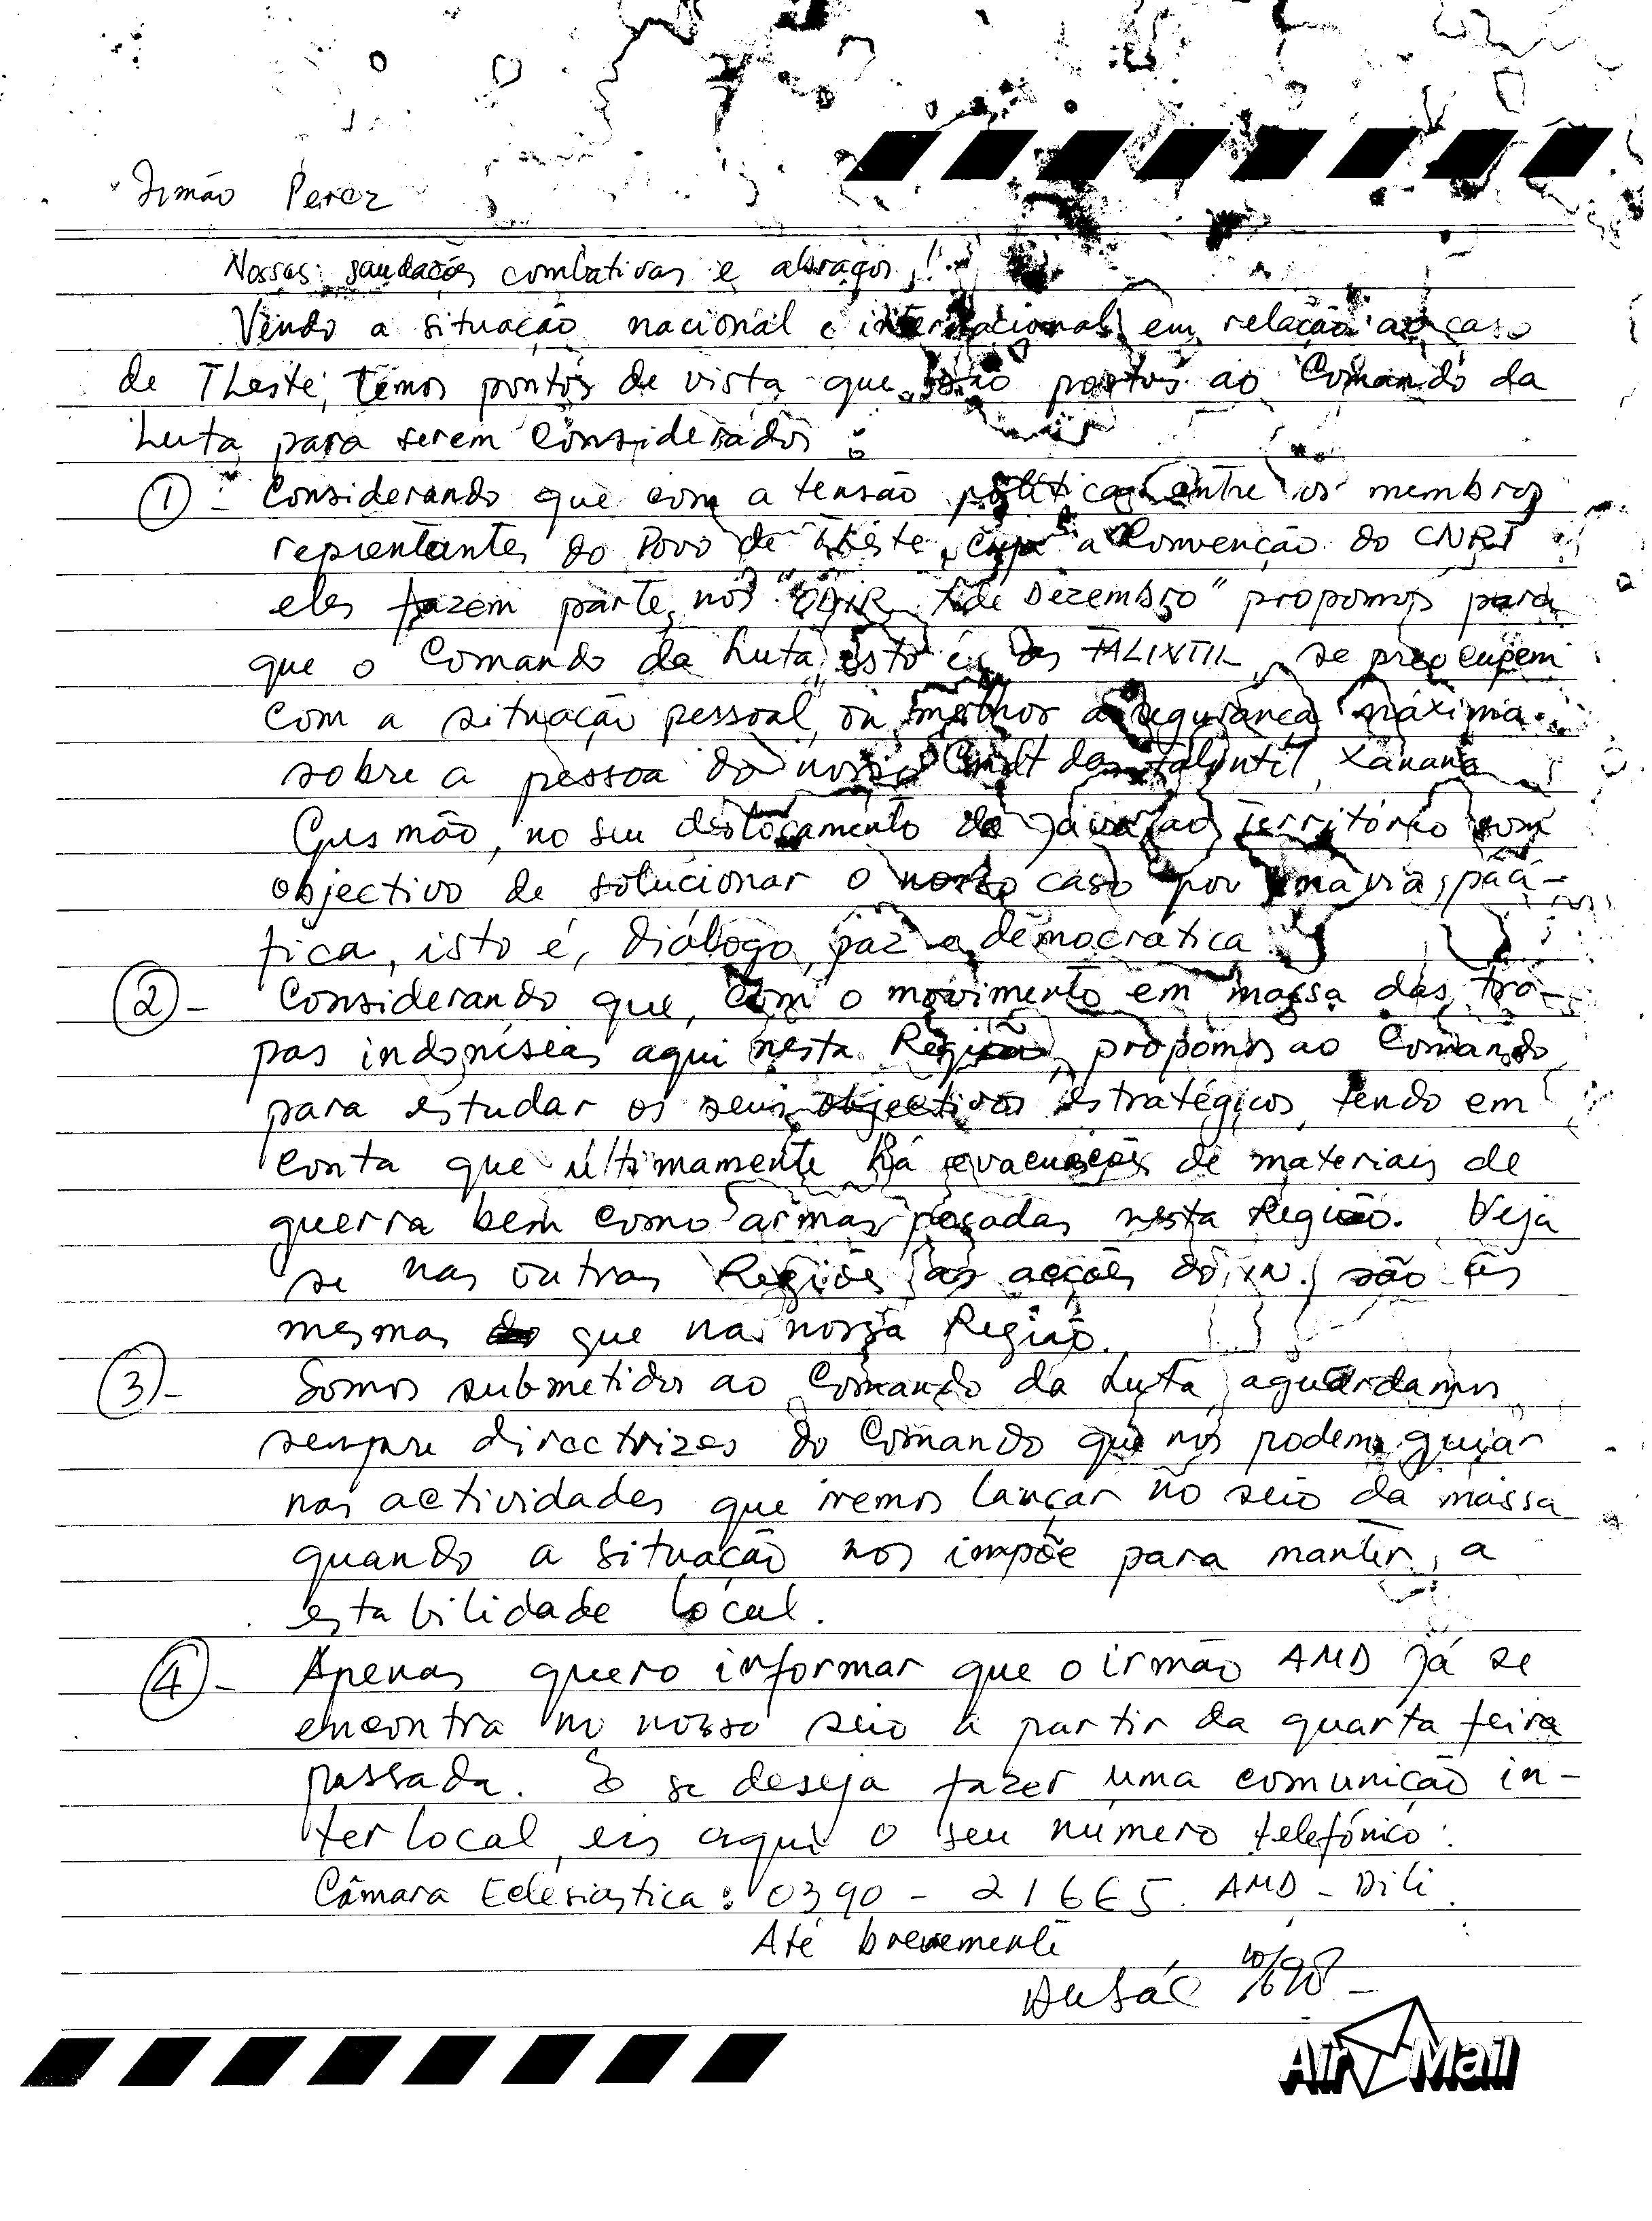 Irmão Perez
Nossas saudações combativas e abraços!
Vendo a situação nacional e internacional em relação ao caso
de TLeste, temos pontos de vista que são postos ao Comando da
Luta para serem considerados:
① - Considerando que com a tensão política entre os membros
reprentantes do Povo de TLeste, cuja a Convenção do CNRT
eles fazem parte, nós " 7 de Dezembro" propomos para
que o Comando da Luta, isto é, as FALINTIL, se preocupem
com a situação pessoal, ou melhor a segurança máxima
sobre a pessoa do nosso Cmdt das Falintil, Xanana
Gusmão, no seu deslocamento de Java ao Território com
objectivo de solucionar o nosso caso por uma via pací-
fica, isto é, diálogo, paz e democrática
② - Considerando que, com o movimento em massa das tro-
pas indonísias aqui nesta Região, propomos ao Comando
para estudar os seus objectivos estratégicos, tendo em
conta que últimamente há evacuações de materiais de
guerra bem como armas pesadas nesta Região. Veja
se nas outras Regiões as acções do IN. são as
mesmas que na nossa Região.
③ - Somos submetidos ao Comando da Luta, aguardamos
sempre directrizes do Comando que nos podem guiar
nas actividades que iremos lançar no seio da massa
quando a situação nos impõe para manter a
estabilidade local.
④ - Apenas quero informar que o irmão AMD já se
encontra no nosso seio a partir da quarta feira
passada. E se deseja fazer uma comunicão in-
terlocal, eis aqui o seu número telefónico:
Câmara Eclesiástica: 0390 - 21665. AMD - Dili.
Até brevemente
98
Air Mail